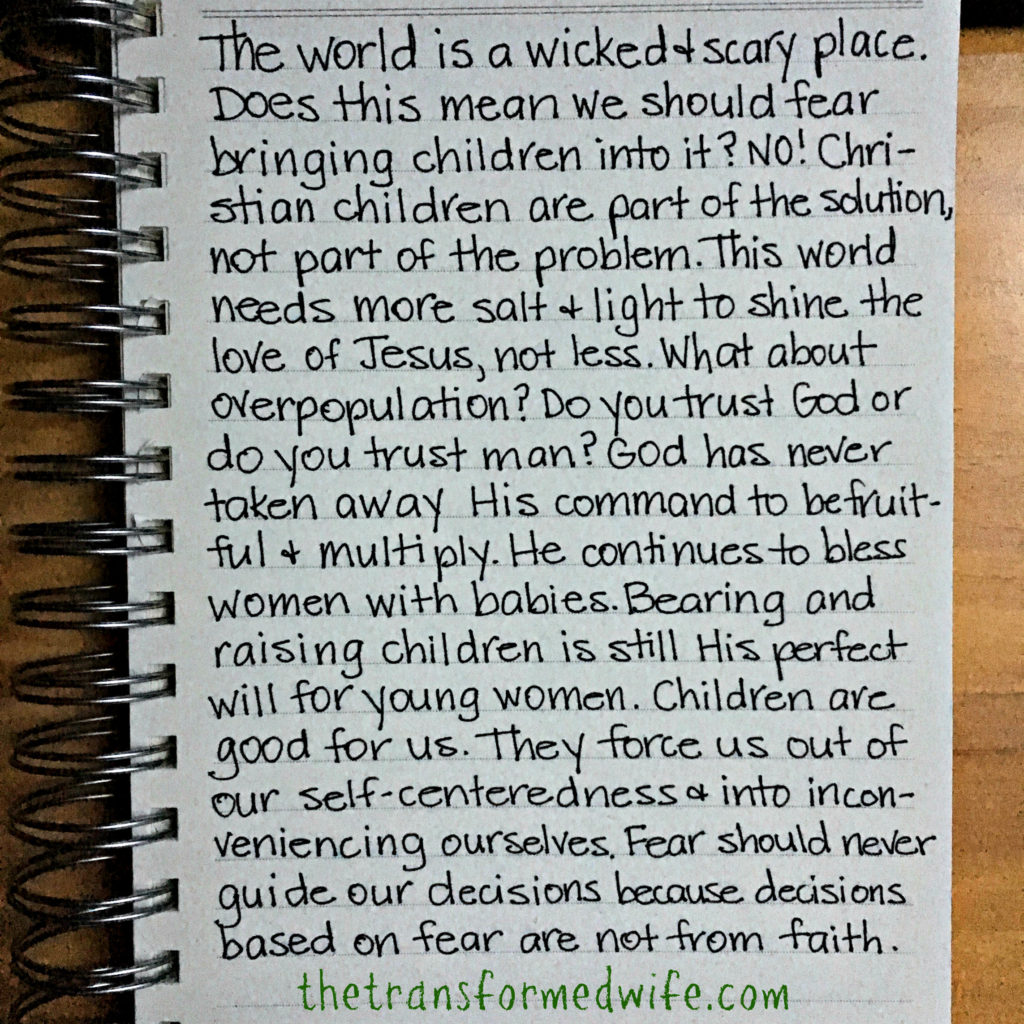 The world is a wicked & scary place.
Does this mean we should fear
bringing children into it? NO! Chri-
stian children are part of the solution,
not part of the problem. This world
needs more salt & light to shine the
love of Jesus, not less. What about
overpopulation? Do you trust God or
do you trust man? God has never
taken away His command to be fruit-
ful & multiply. He continues to bless
women with babies. Bearing and
raising children is still His perfect
will for young women. Children are
good for us. They force us out of
our self-centeredness & into incon-
veniencing ourselves. Fear should never
guide our decisions because decisions
based on fear are not from faith.
thetransformedwife.com